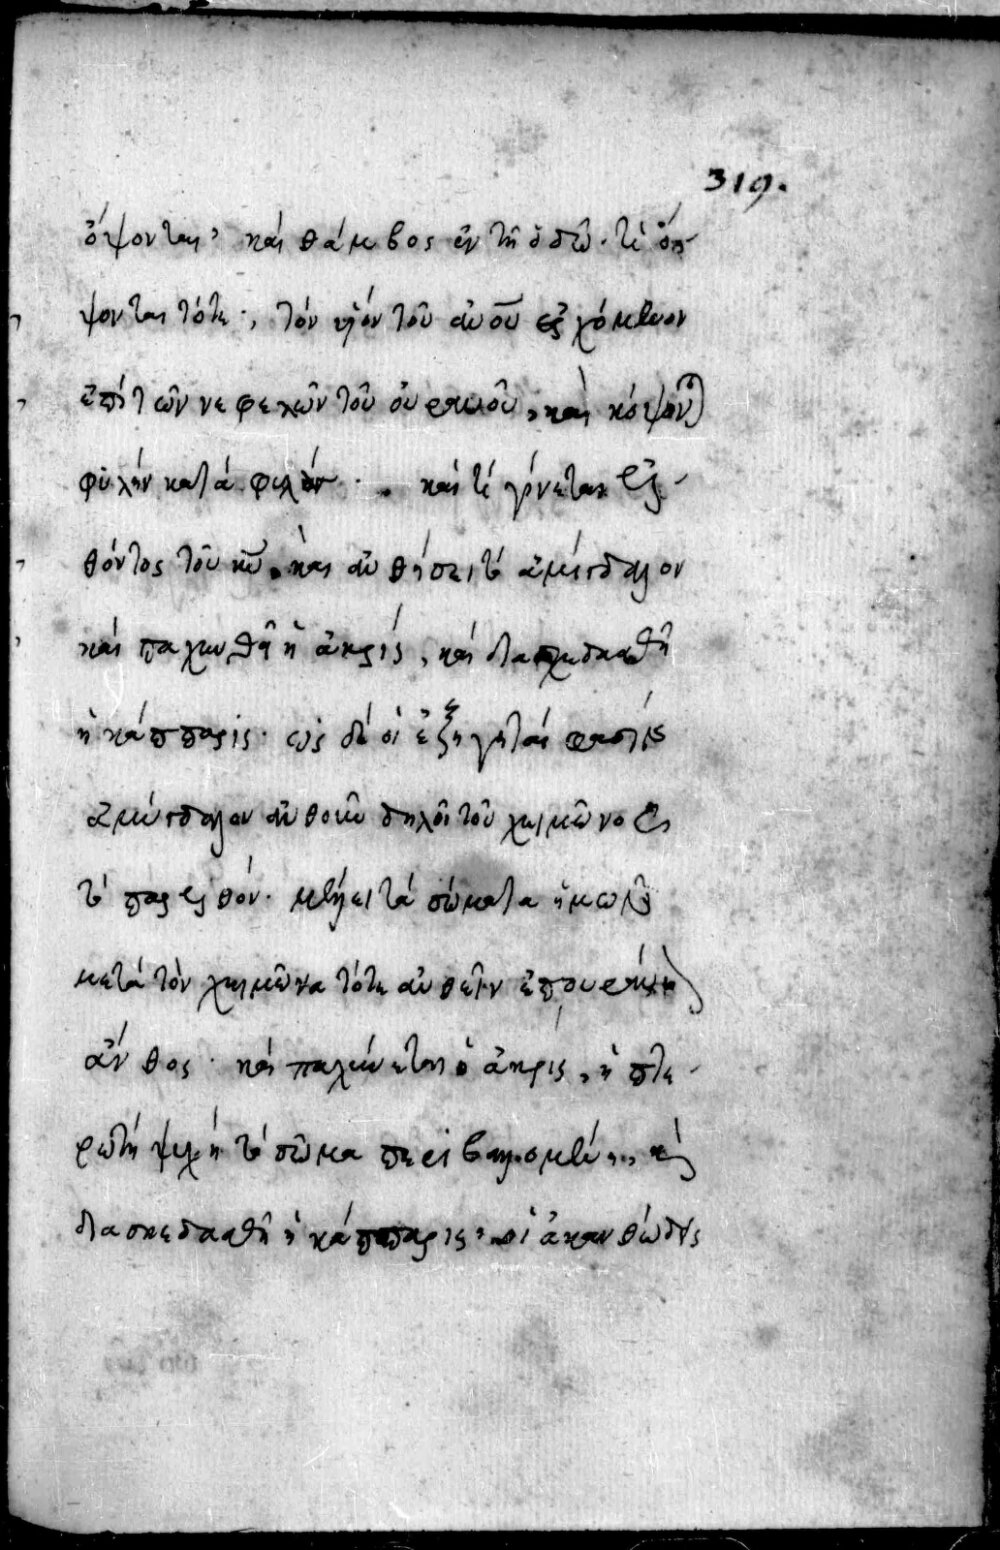 319.
ὄψονται, καὶ θάμβος ἐν τῆ ὁδῶ. τί ὄ-
ψονται τότε; τὸν υἱὸν τοῦ ἀνου ἐρχόμενον
ἐπὶ τῶν νεφελῶν τοῦ οὐρανοῦ, καὶ κόψονται
φυλὴν κατὰ φυλήν. καὶ τί γίνεται ἐλ-
θόντος τοῦ κυ. καὶ ἀνθήσει τὸ ἀμύγδαλον
καὶ παχυνθῆ ἡ ἀκρίς, καὶ διασκεδασθῆ
ἡ κάππαρις. ὡς δὲ οἱ ἐξηγηταί φασιν
ἀμύγδαλον ἀνθοῦν δηλοῖ τοῦ χειμῶνος
τὸ παρελθόν. μέλλει τὰ σώματα ἡμῶν
μετὰ τὸν χειμῶνα τότε ἀνθεῖν ἐπουράνιον
ἄνθος. καὶ παχύνεται ὁ ἀκρίς, ἡ πτε-
ρωτὴ ψυχὴ τὸ σῶμα περιβαλλομένη, καὶ
διασκεδασθῆ ἡ κάππαρις, οἱ ἀκανθώδεις